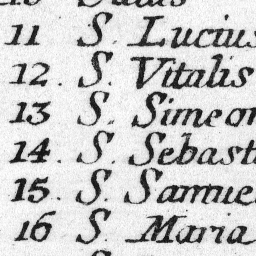 11 S. Lucius
12. S. Vitalis
13 S. Simeon
14. S. Sebasti
15. S. Samuel
16 S. Maria